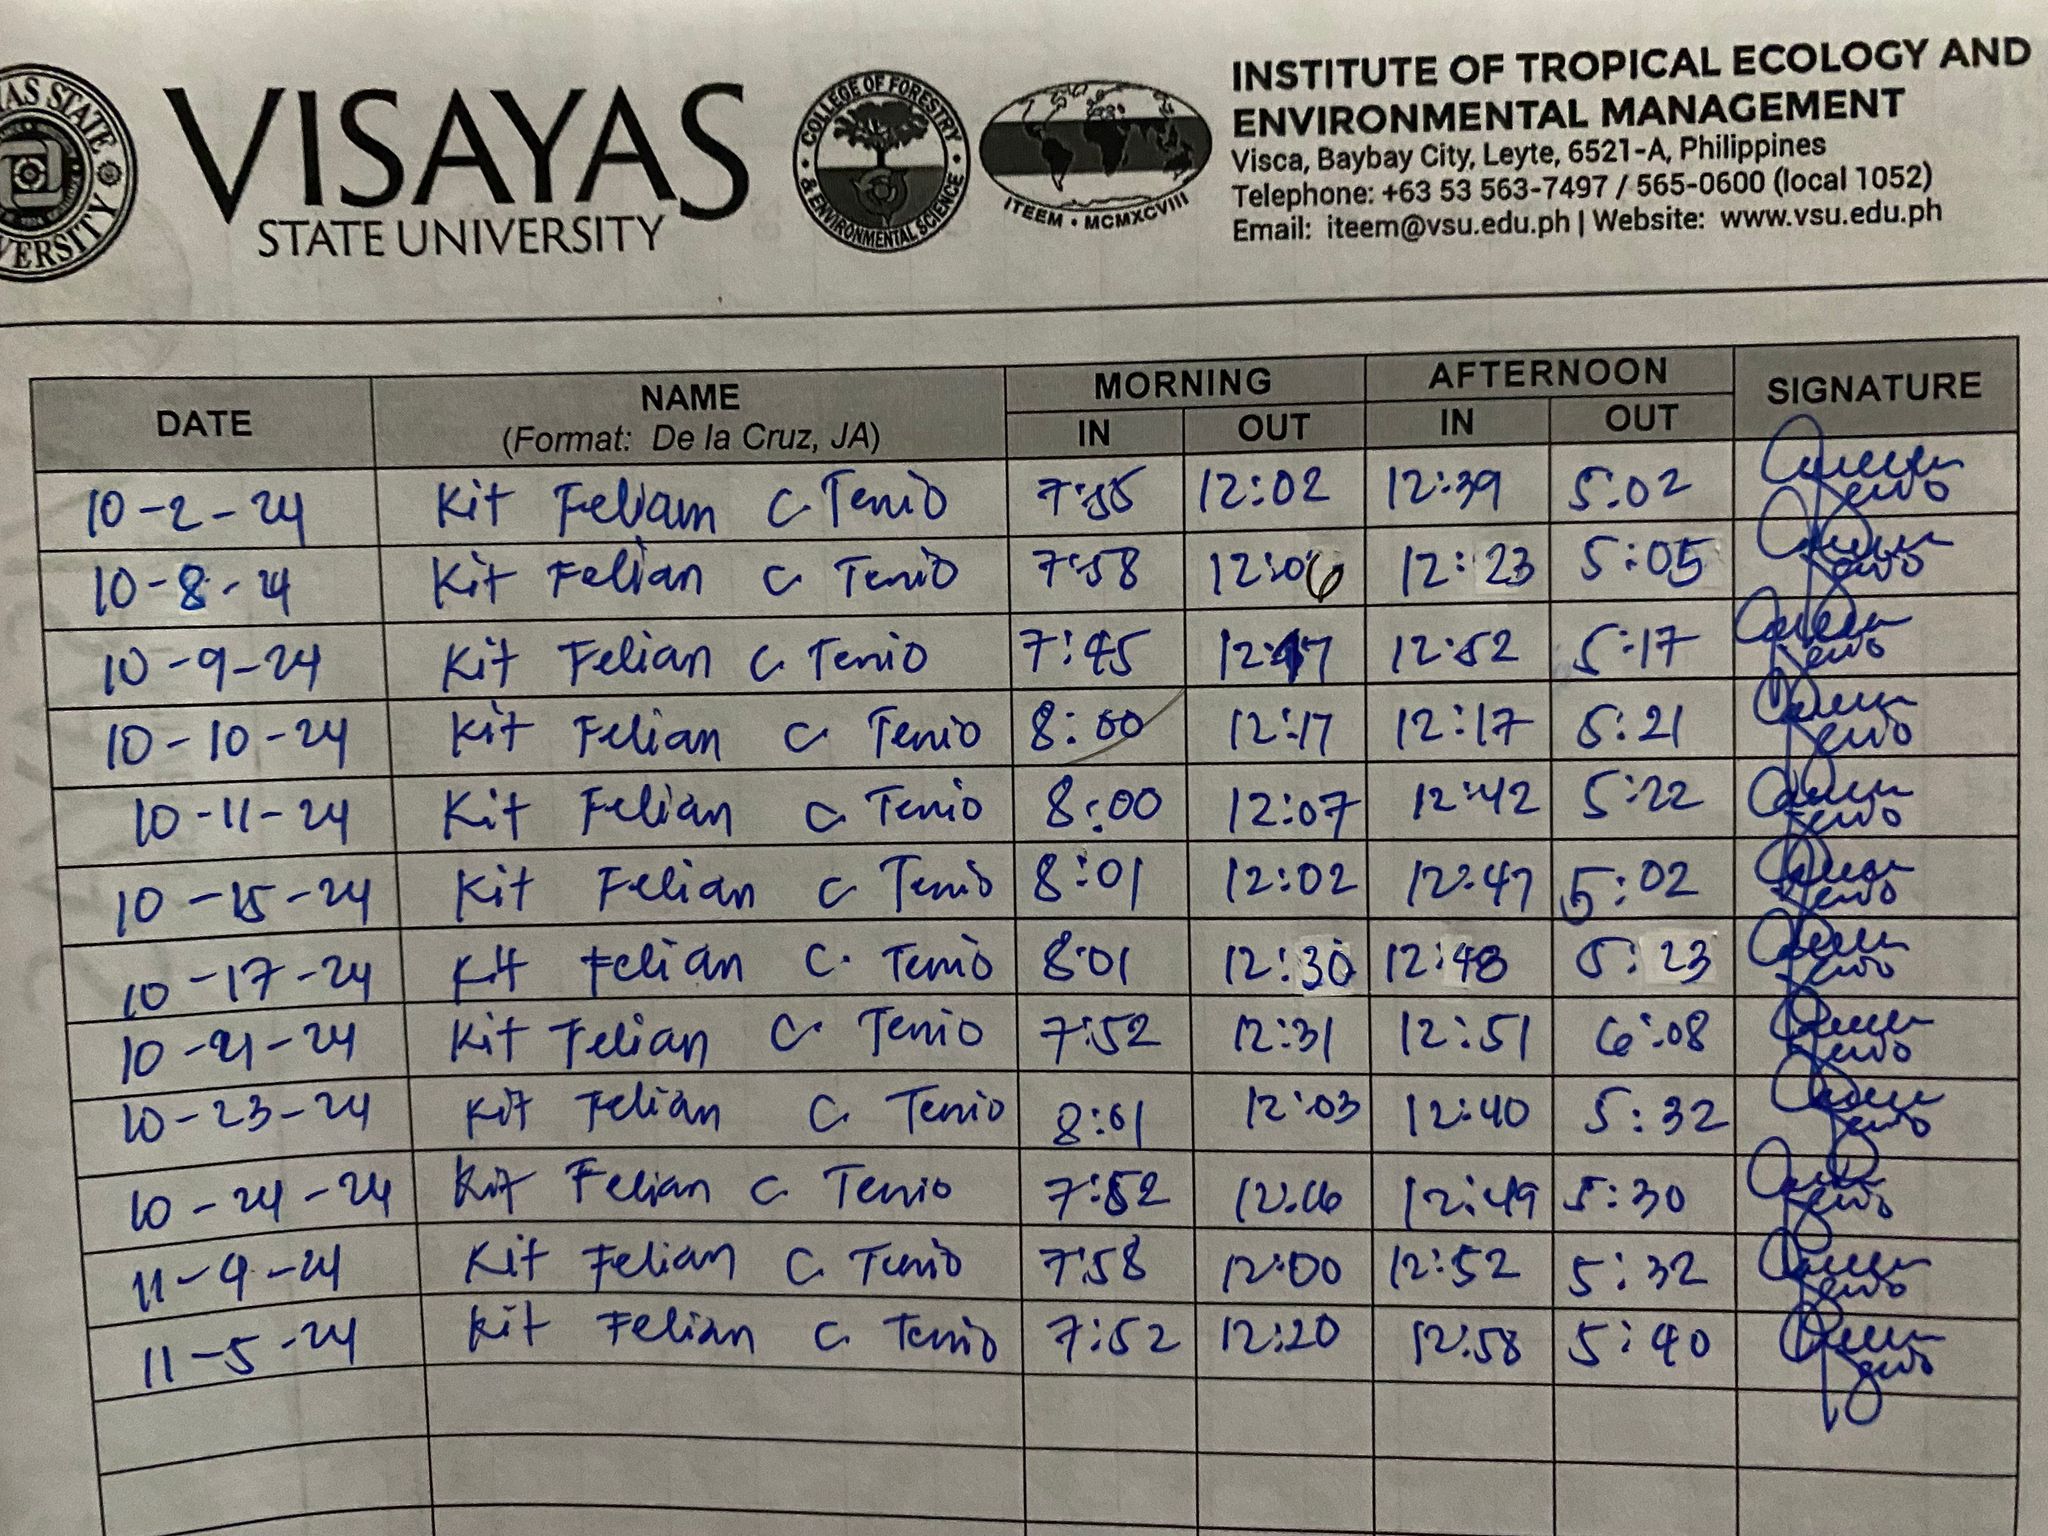 VISAYAS
STATE UNIVERSITY
COLLEGE OF FORESTRY
& ENVIRONMENTAL SCIENCE
ITEEM • MCMXCVIII
INSTITUTE OF TROPICAL ECOLOGY AND
ENVIRONMENTAL MANAGEMENT
Visca, Baybay City, Leyte, 6521-A, Philippines
Telephone: +63 53 563-7497 / 565-0600 (local 1052)
Email: iteem@vsu.edu.ph | Website: www.vsu.edu.ph
DATE NAME MORNING AFTERNOON SIGNATURE
(Format: De la Cruz, JA) IN OUT IN OUT
10-2-24 Kit Feliam C. Tenio 7:55 12:02 12:39 5:02
10-8-24 Kit Felian C. Tenio 7:58 12:06 12:23 5:05
10-9-24 Kit Felian C. Tenio 7:45 12:17 12:52 5:17
10-10-24 Kit Felian C. Tenio 8:00 12:17 12:17 5:21
10-11-24 Kit Felian C. Tenio 8:00 12:07 12:42 5:22
10-15-24 Kit Felian C. Tenio 8:01 12:02 12:47 5:02
10-17-24 Kit Felian C. Tenio 8:01 12:30 12:48 5:23
10-21-24 Kit Felian C. Tenio 7:52 12:31 12:51 6:08
10-23-24 Kit Felian C. Tenio 8:01 12:03 12:40 5:32
10-24-24 Kit Felian C. Tenio 7:52 12:49 5:30
11-4-24 Kit Felian C. Tenio 7:58 12:00 12:52 5:32
11-5-24 Kit Felian C. Tenio 7:52 12:20 12:58 5:40